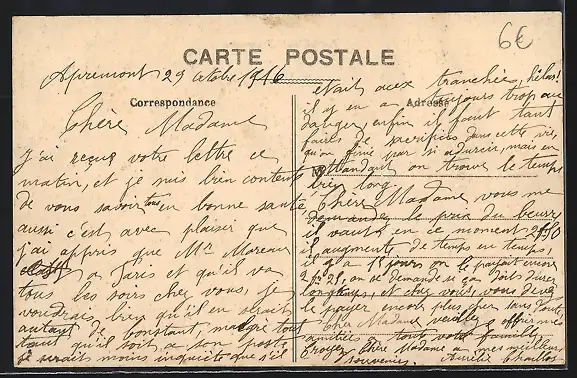 6€
CARTE POSTALE
Apremont 29 Octobre 1916
Correspondance
Adresse
Chère Madame
J'ai reçue votre lettre ce
matin, et je suis bien contente
de vous savoir tous en bonne santé
aussi c'est avec plaisir que
j'ai appris que Mr Moreau
a Paris et qu'il va
tous les soirs chez vous, je
voudrais bien qu'il en serait
autant de Constant, malgré tout
tant qu'il soit a son poste
je serait moins inquiète que s'il
était aux tranchées, hélas!
il y en a toujours trop au
danger, enfin il faut tant
faire de sacrifices dans cette vie,
qu'on finie par si adurcir, mais en
attendant on trouve le temps
bien long.
Chère Madame vous me
demandez le prix du beurre
il vaut en ce moment 2f50
il augmente de temps en temps,
il y a 15 jours on le
2fr 25, on se demande se
longtemps, et chez vous, vous devez
le payer encore plus cher sans doute,
Chère Madame veuillez offrir mes
amitiés a toute votre famille
Croyez Chère Madame a mes meilleurs
souvenirs. Aurélie